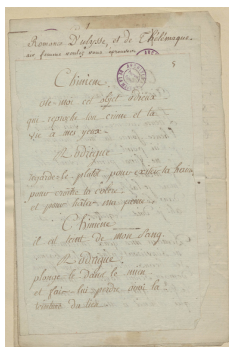 Romance d'ulysse, et de Thélémaque.
5
Chimene
ote-moi cet objet odieux
qui reproche ton crime et ta
vie a mes yeux.
Rodrigue
regarde le plutôt pour exciter ta haine
pour croître ta colere
et pour hâter ma peine
Chimene
il est teint de mon sang.
Rodrigue
plonge le dans le mien
et fais lui perdre ainsi la
teinture du tien